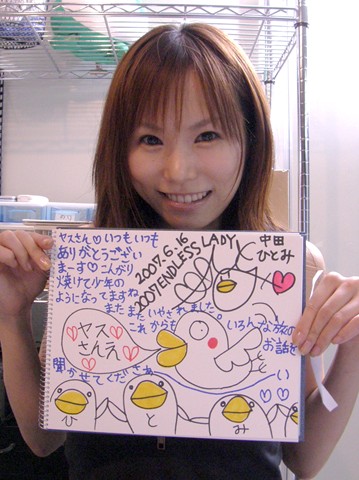 ヤスさん♡いつもいつも
ありがとうござい
まーす♡こんがり
焼けて少年の
ようになってますね
また、またいやされました。
これからも いろんな旅の
お話を
聞かせてくださぁーい
♡♡
2007.6.16
2007ENDLESS LADY
中田
ひとみ
♡ヤス♡
♡さんえ♡
ひ と み